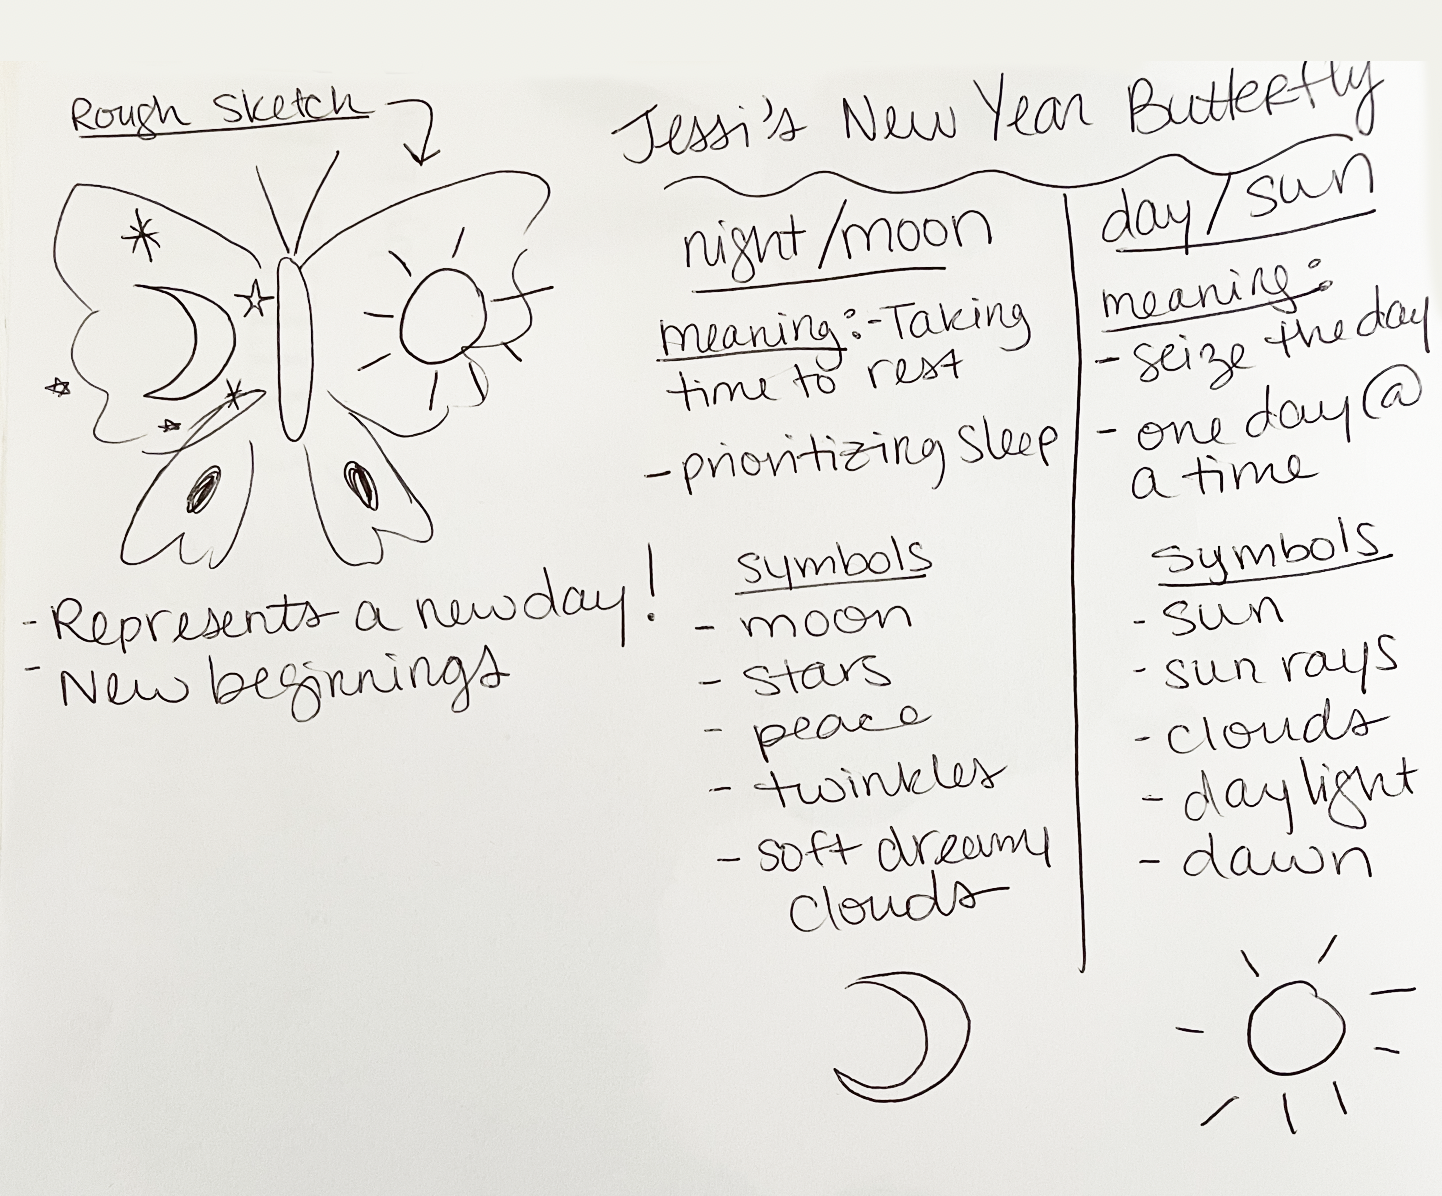 Rough Sketch
Jessi's New Year Butterfly
night/moon
meaning:-Taking
time to rest
-prioritizing sleep
symbols
- moon
- stars
- peace
- twinkles
- soft dreamy
clouds
day/sun
meaning:
- seize the day
- one day @
a time
symbols
- sun
- sun rays
- clouds
- daylight
- dawn
- Represents a new day!
- New beginnings